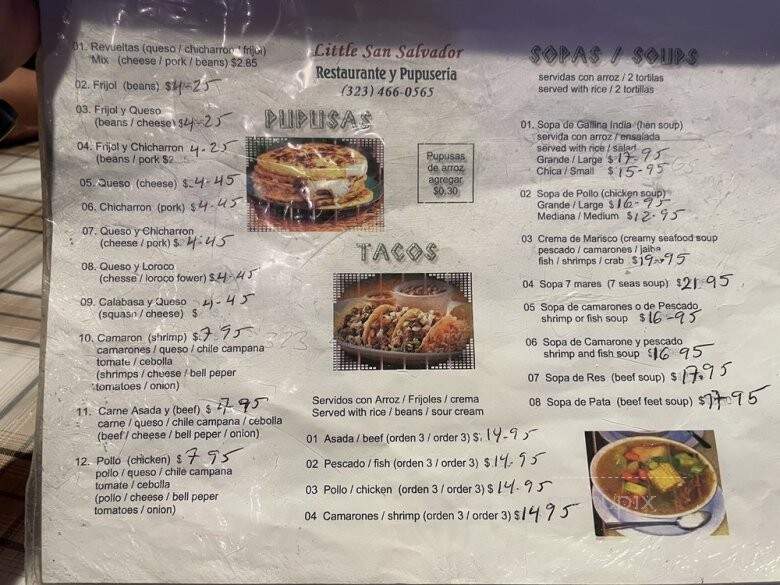 Little San Salvador
Restaurante y Pupusería
(323) 466-0565
PUPUSAS
01. Revueltas (queso / chicharron / frijol)
Mix (cheese / pork / beans) $2.85
02. Frijol (beans) $4-25
03. Frijol y Queso
(beans / cheese) $4-25
04. Frijol y Chicharron 4-25
(beans / pork $2
05. Queso (cheese) $ 4-45
06. Chicharron (pork) $4-45
07. Queso y Chicharron
(cheese / pork) $ 4-45
08. Queso y Loroco
(chesse / loroco fower) $4-45
09. Calabasa y Queso 4-45
(squash / cheese) $
10. Camaron (shrimp) $ 7 95
camarones / queso / chile campana
tomate / cebolla
(shrimps / cheese / bell peper
tomatoes / onion)
11. Carne Asada y (beef) $ 7.95
carne / queso / chile campana / cebolla
(beef / cheese / bell peper / onion)
12. Pollo (chicken) $ 7 95
pollo / queso / chile campana
tomate / cebolla
(pollo / cheese / bell peper
tomatoes / onion)
Pupusas
de arroz
agregar
$0.30
TACOS
Servidos con Arroz / Frijoles / crema
Served with rice / beans / sour cream
01 Asada / beef (orden 3 / order 3) $. 14-95
02 Pescado / fish (orden 3 / order 3) $ 14-95
03 Pollo / chicken (orden 3 / order 3) $ 14-95
04 Camarones / shrimp (orden 3 / order 3) $14 95
SOPAS / SOUPS
servidas con arroz / 2 tortilas
served with rice / 2 tortillas
01. Sopa de Gallina India (hen soup)
servida con arroz / ensalada
served with rice / salad
Grande / Large $ 17-95
Chica / Small $ 15-95
02 Sopa de Pollo (chicken soup)
Grande / Large $16-95
Mediana / Medium $12-95
03 Crema de Marisco (creamy seafood soup
pescado / camarones / jaiba
fish / shrimps / crab $19-95
04 Sopa 7 mares (7 seas soup) $21 95
05 Sopa de camarones o de Pescado
shrimp or fish soup $16-95
06 Sopa de Camarone y pescado
shrimp and fish soup $16 95
07 Sopa de Res (beef soup) $ 17.95
08 Sopa de Pata (beef feet soup) $17-95